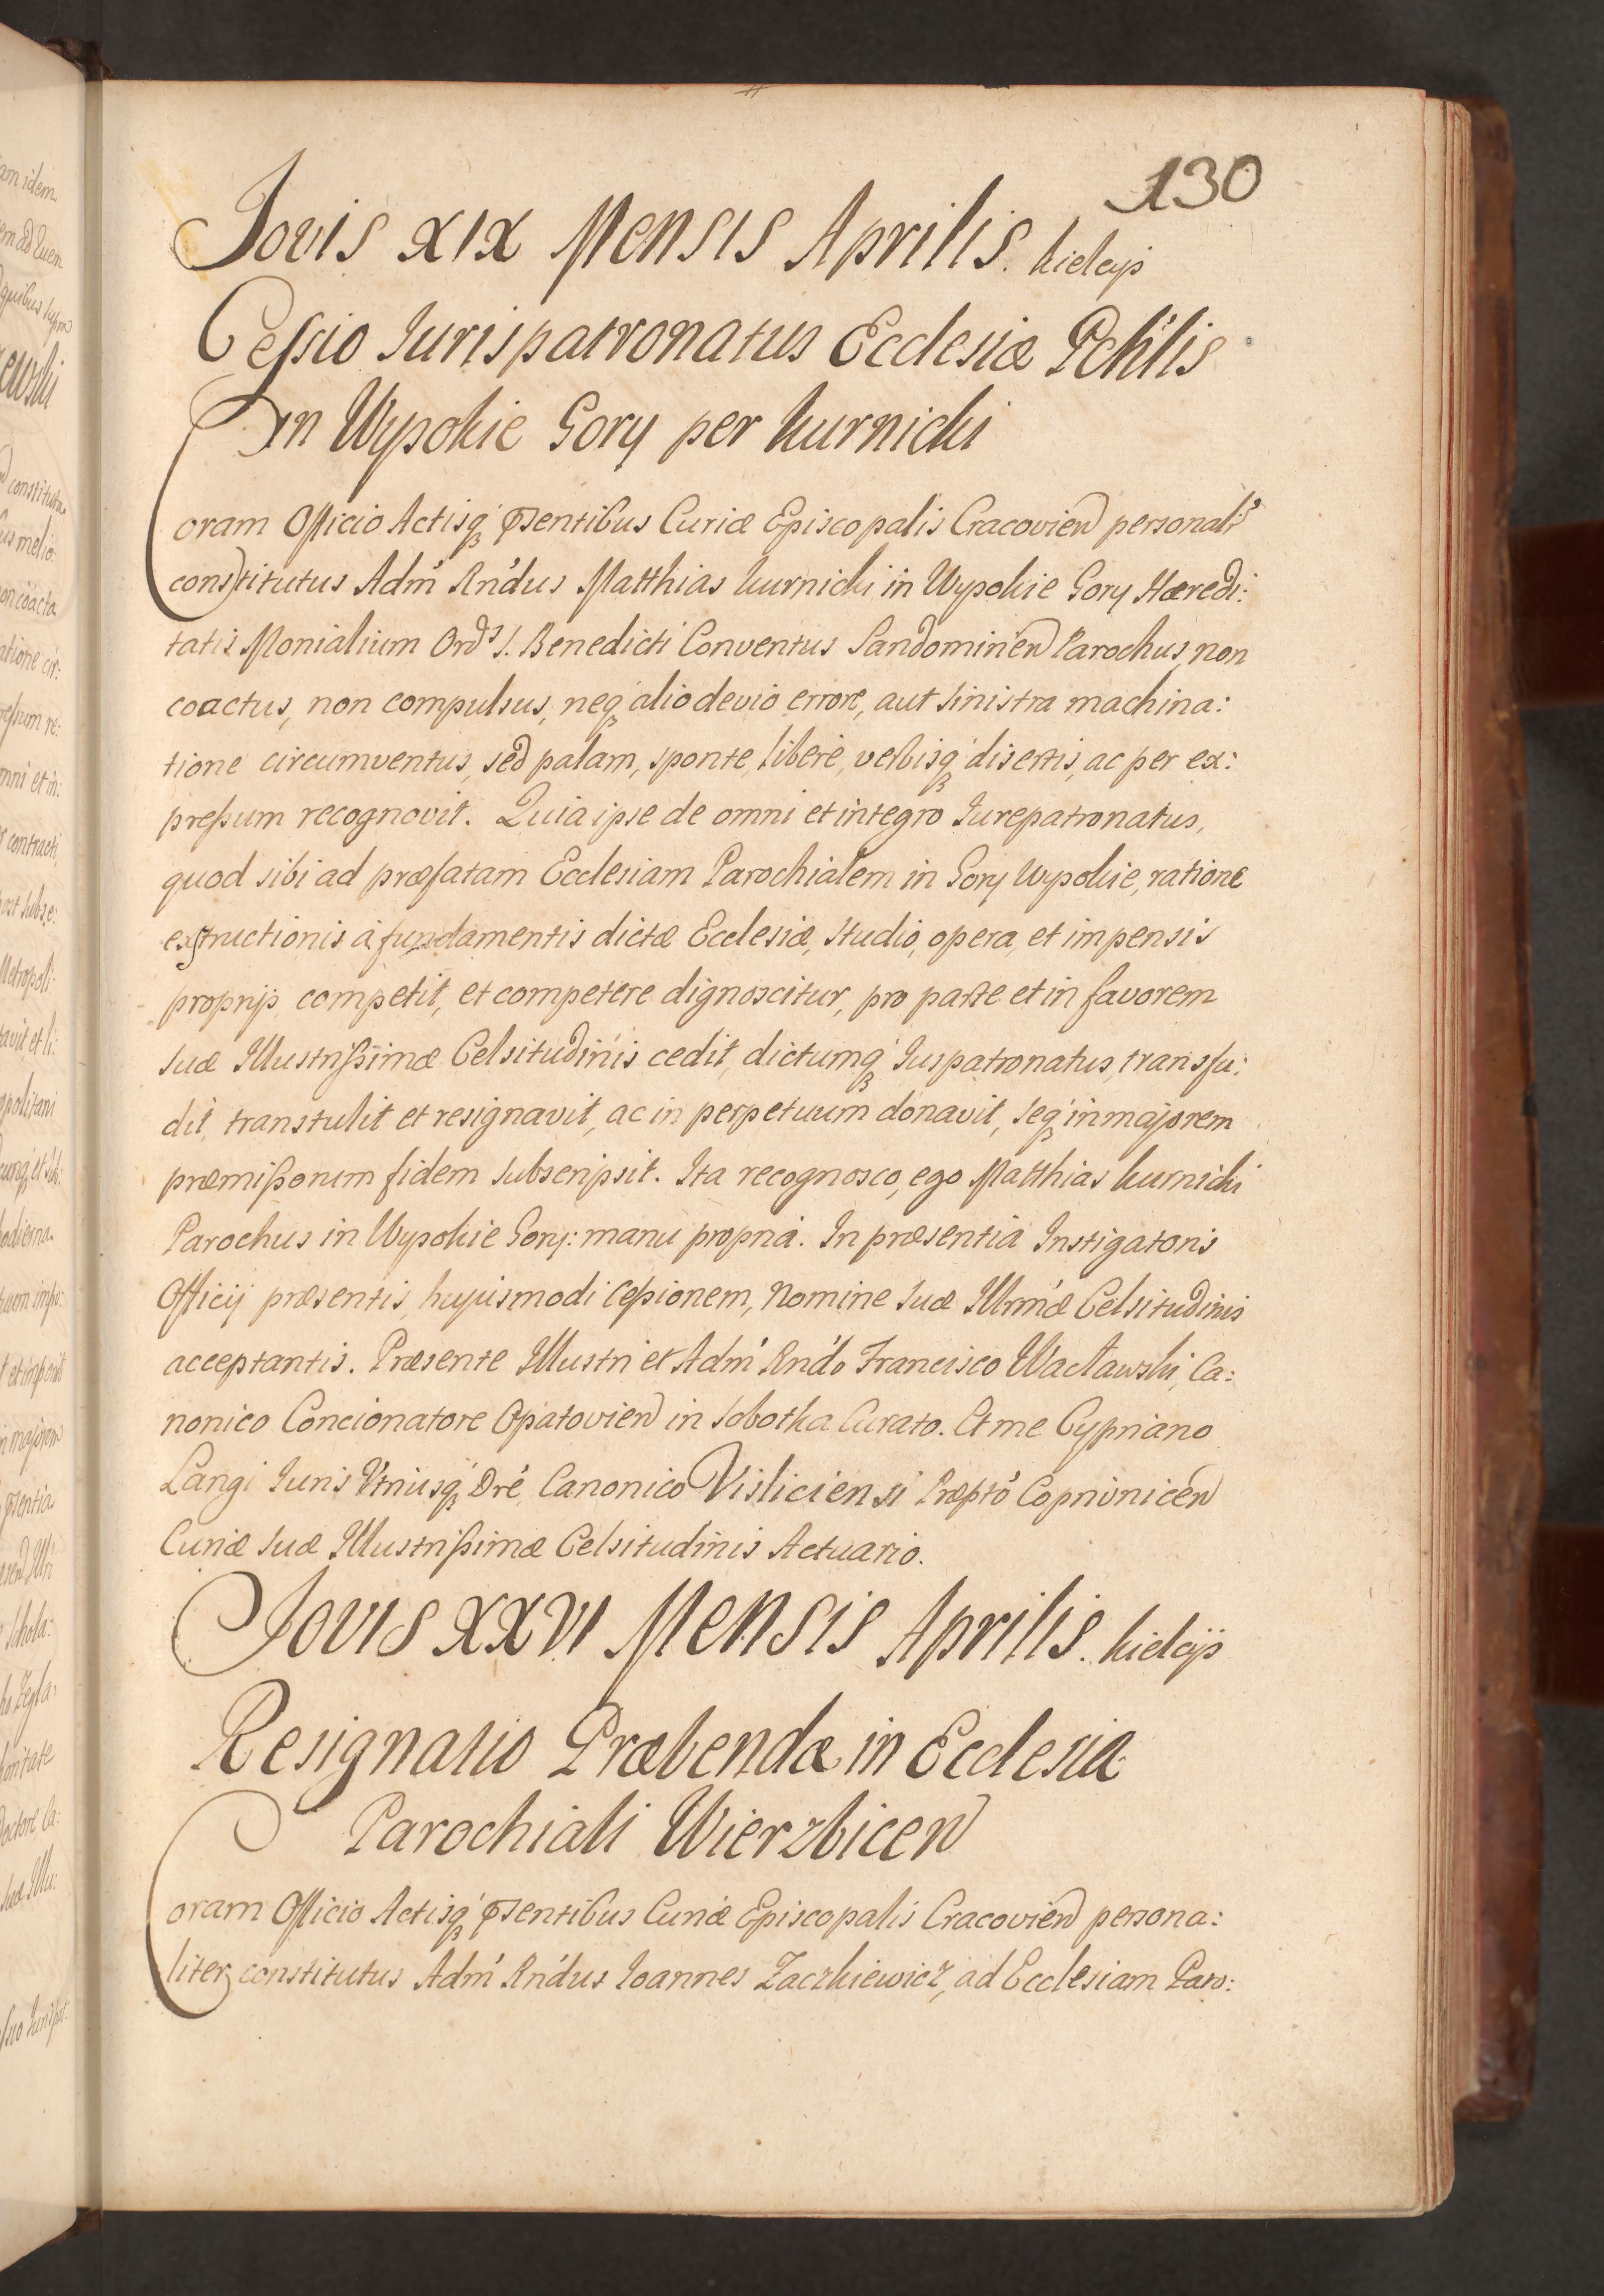 130
Jovis XIX Mensis Aprilis. Kielcÿs
Cessio Jurispatronatus Ecclesiæ Pchĺlis
in Wysokie Gory per Kurnicki
Coram Officio Actisq́ꝫ p̄sentibus Curiæ Episcopalis Cracovien̄ personalr̄
constitutus Adm̄ Rńdus Matthias Kurnicki in Wysokie Gory Hæredi:
tatis Monialium Ord̄s S. Benedicti Conventus Sandomirien̄ Parochus, non
coactus, non compulsus, neqꝫ alio devio errore, aut sinistra machina:
tione circumventus, sed palam, sponte, liberè, verbisq́ꝫ disertis, ac per ex:
pressum recognovit. Quia ipse de omni et integro Jurepatronatus,
quod sibi ad præfatam Ecclesiam Parochialem in Gory Wysokie, ratione
exstructionis à fundamentis dictæ Ecclesiæ, studio, opera, et impensis
proprÿs competit, et competere dignoscitur, pro parte et in favorem
Suæ Illustrissimæ Celsitudinis cedit, dictumq́ꝫ Juspatronatus, transfu:
dit, transtulit et resignavit, ac in perpetuum donavit, seq́ꝫ in majorem
præmissorum fidem subscripsit. Ita recognosco, ego Matthias Kurnicki
Parochus in Wysokie Gory: manu propriá. In præsentia Instigatoris
Officij præsentis, hujusmodi Cessionem, Nomine Suæ Illrmǽ Celsitudinis
acceptantis. Præsente Illustri et Adm̄ Rńdo Francisco Wacławski, Ca:
nonico Concionatore Opatovien̄ in Sobotka Curato. Et me Cypriano
Langi Juris Vtriusq́ꝫ Dré Canonico Visliciensi Præptó Coprivnicen̄
Curiæ Suæ Illustrissimæ Celsitudinis Actuario.
Jovis XXVI Mensis Aprilis. Kielcÿs
Resignatio Præbendæ in Ecclesia
Parochiali Wierzbicen̄
Coram Officio Actisq́ꝫ p̄sentibus Curiæ Episcopalis Cracovien̄ persona:
liter constitutus Adm̄ Rńdus Joannes Zaczkiewicz, ad Ecclesiam Paro: